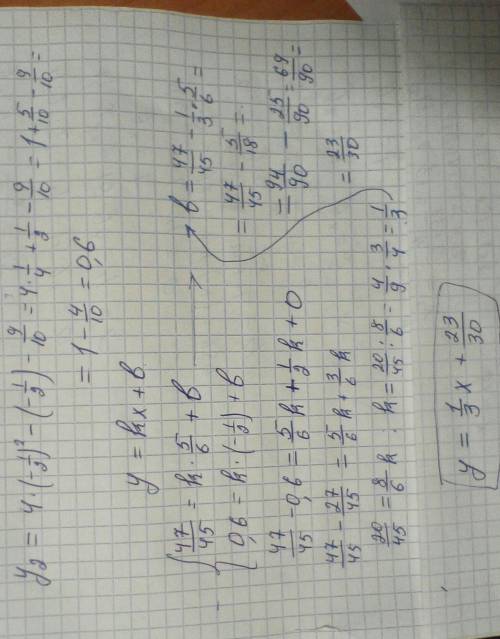 y₂ = 4·(-1/2)² - (-1/2) - 9/10 = 4·1/4 + 1/2 - 9/10 = 1 + 5/10 - 9/10 =
= 1 - 4/10 = 0,6
y = kx + b
{ 47/45 = k·5/6 + b
0,6 = k·(-1/2) + b
47/45 - 0,6 = 5/6 k + 1/2 k + 0
47/45 - 27/45 = 5/6 k + 3/6 k
20/45 = 8/6 k . k = 20/45 : 8/6 = 4/9 · 3/4 = 1/3
b = 47/45 - 1/3·5/6 =
= 47/45 - 5/18 =
= 94/90 - 25/90 = 69/90 =
= 23/30
y = 1/3 x + 23/30